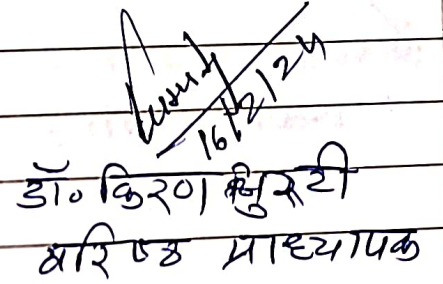 16/2/24
डॉ० किरण
वरिष्ठ प्राध्यापक